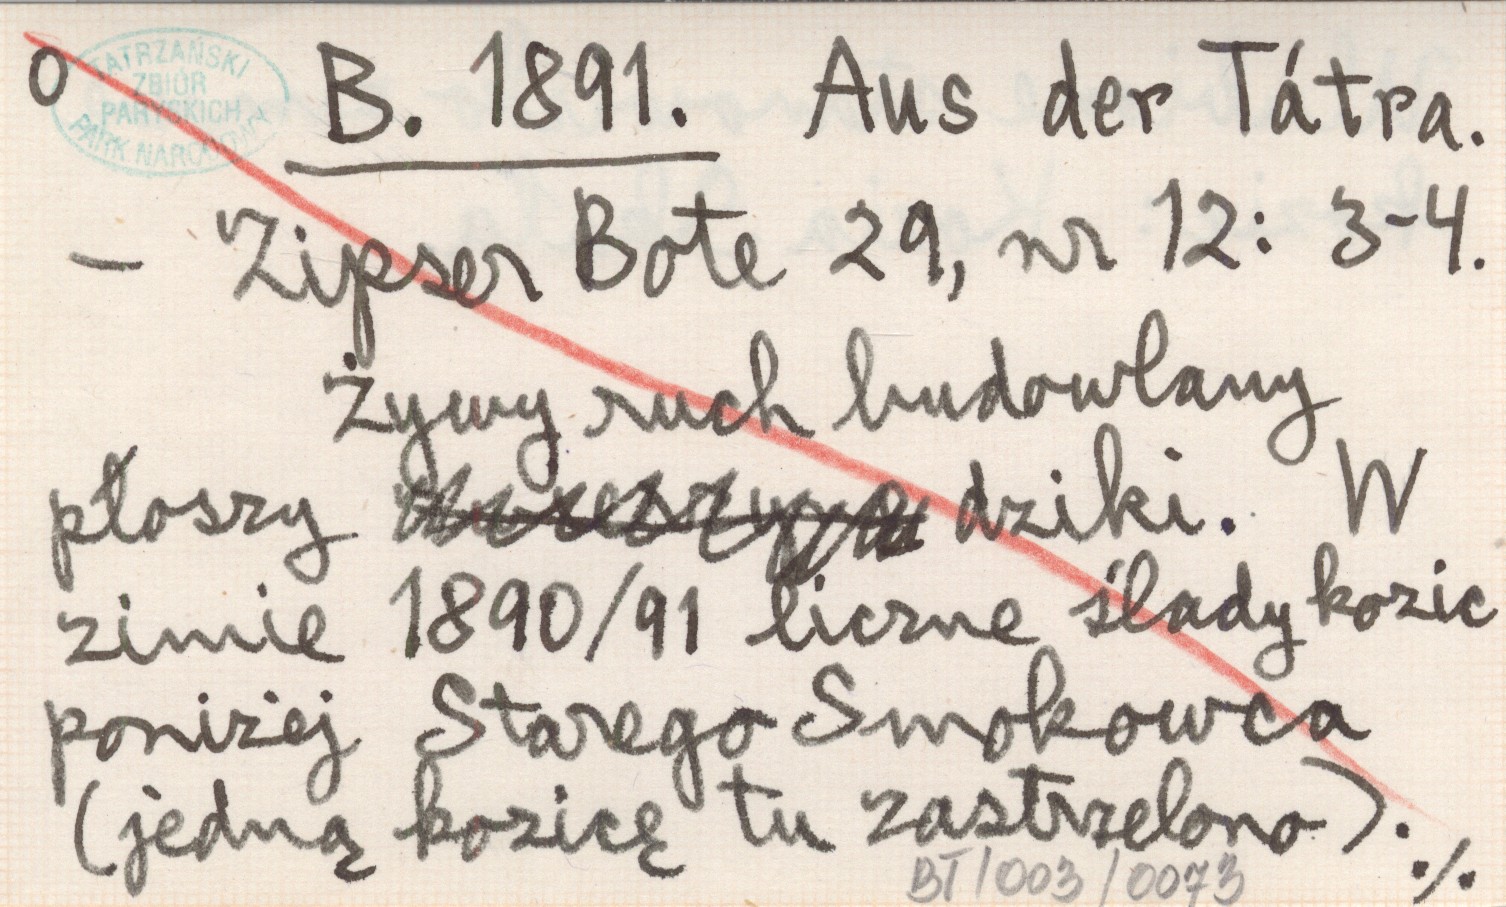 O
TATRZAŃSKI
ZBIÓR
PARYSKICH
PARK NARODOWY
B. 1891. Aus der Tátra.
– Zipser Bote 29, nr 12: 3-4.
Żywy ruch budowlany
płoszy dziki. W
zimie 1890/91 liczne ślady kozic
poniżej Starego Smokowca
(jedną kozicę tu zastrzelono).
BT/003/0073
./.